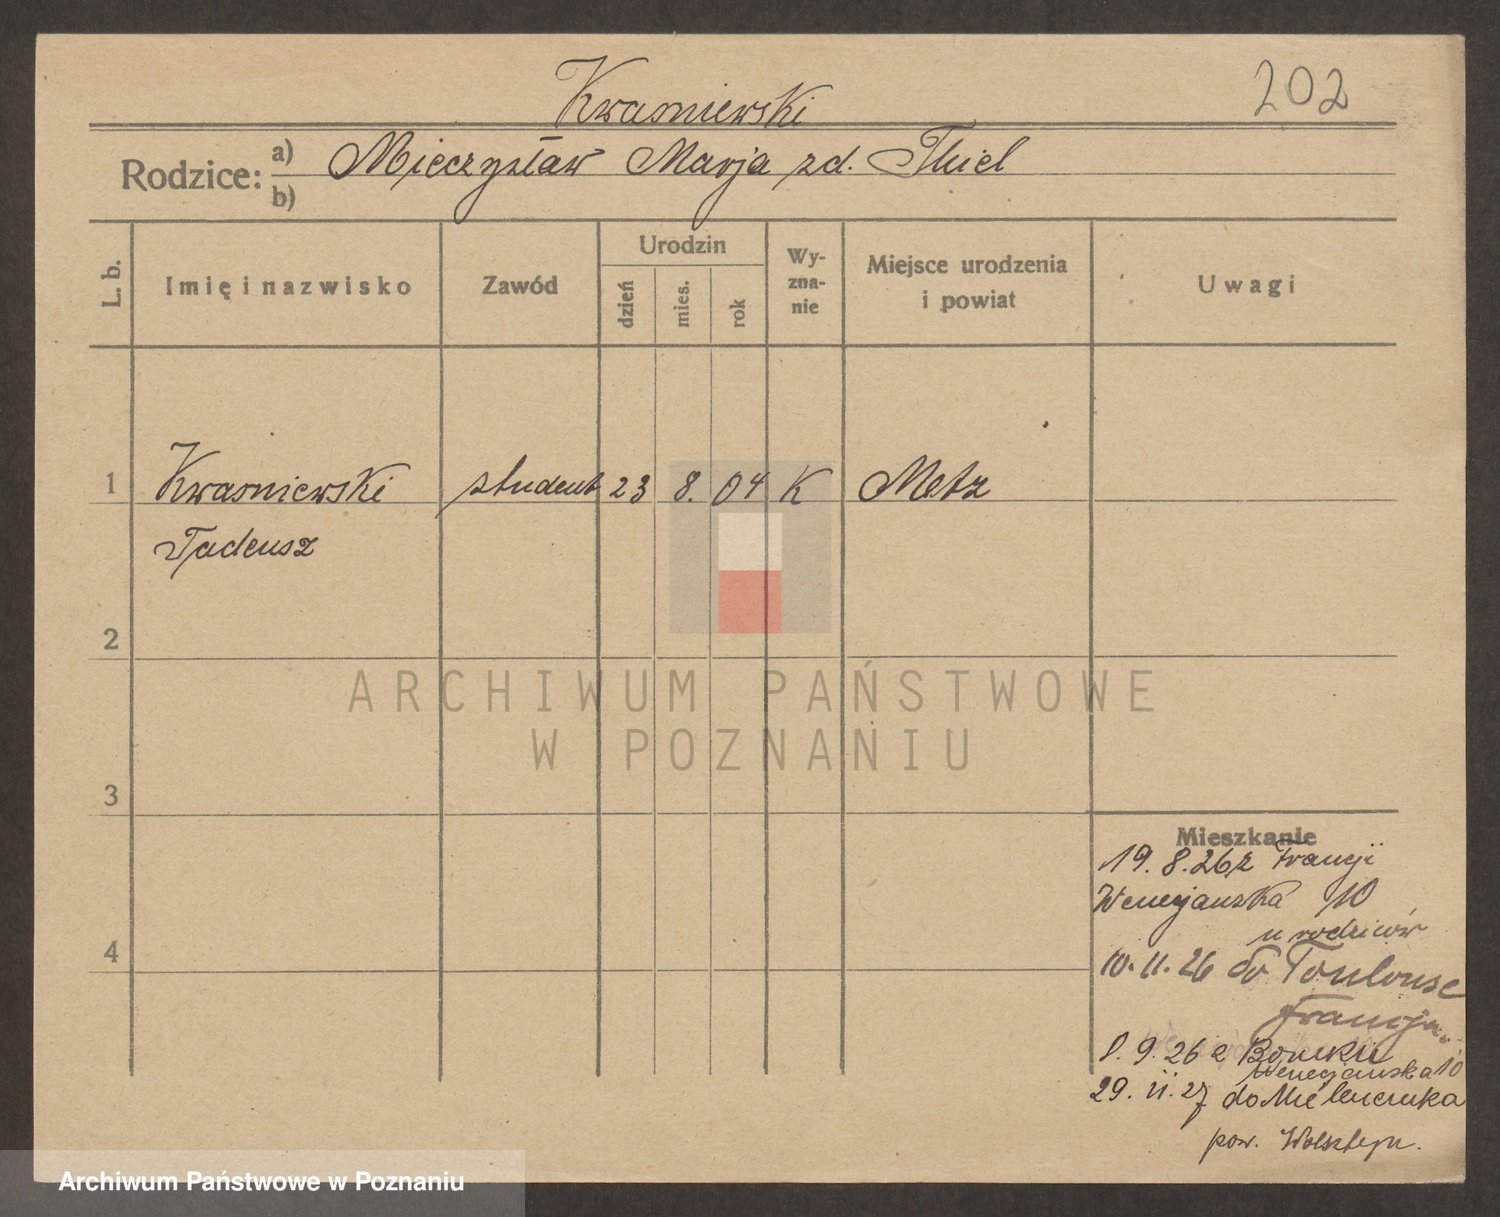 202
Kwasniewski
Rodzice: a) Mieczysław Marja zd. Thiel
b)
L. b.
Imię i nazwisko
Zawód
Urodzin
dzień
mies.
rok
Wy-
zna-
nie
Miejsce urodzenia
i powiat
Uwagi
1 Kwasniewski student 23 8. 04 K Metz
Tadeusz
2
3
4
Mieszkanie
19. 8. 26 z Francji
Wenecjanska 10
u rodziców
10. 11. 26 do Toulouse
Francja.
8. 9. 26 z
Wenecjanska 10
29. 11. 27 do
pow. Wolsztyn.
ARCHIWUM PAŃSTWOWE
W POZNANIU
Archiwum Państwowe w Poznaniu